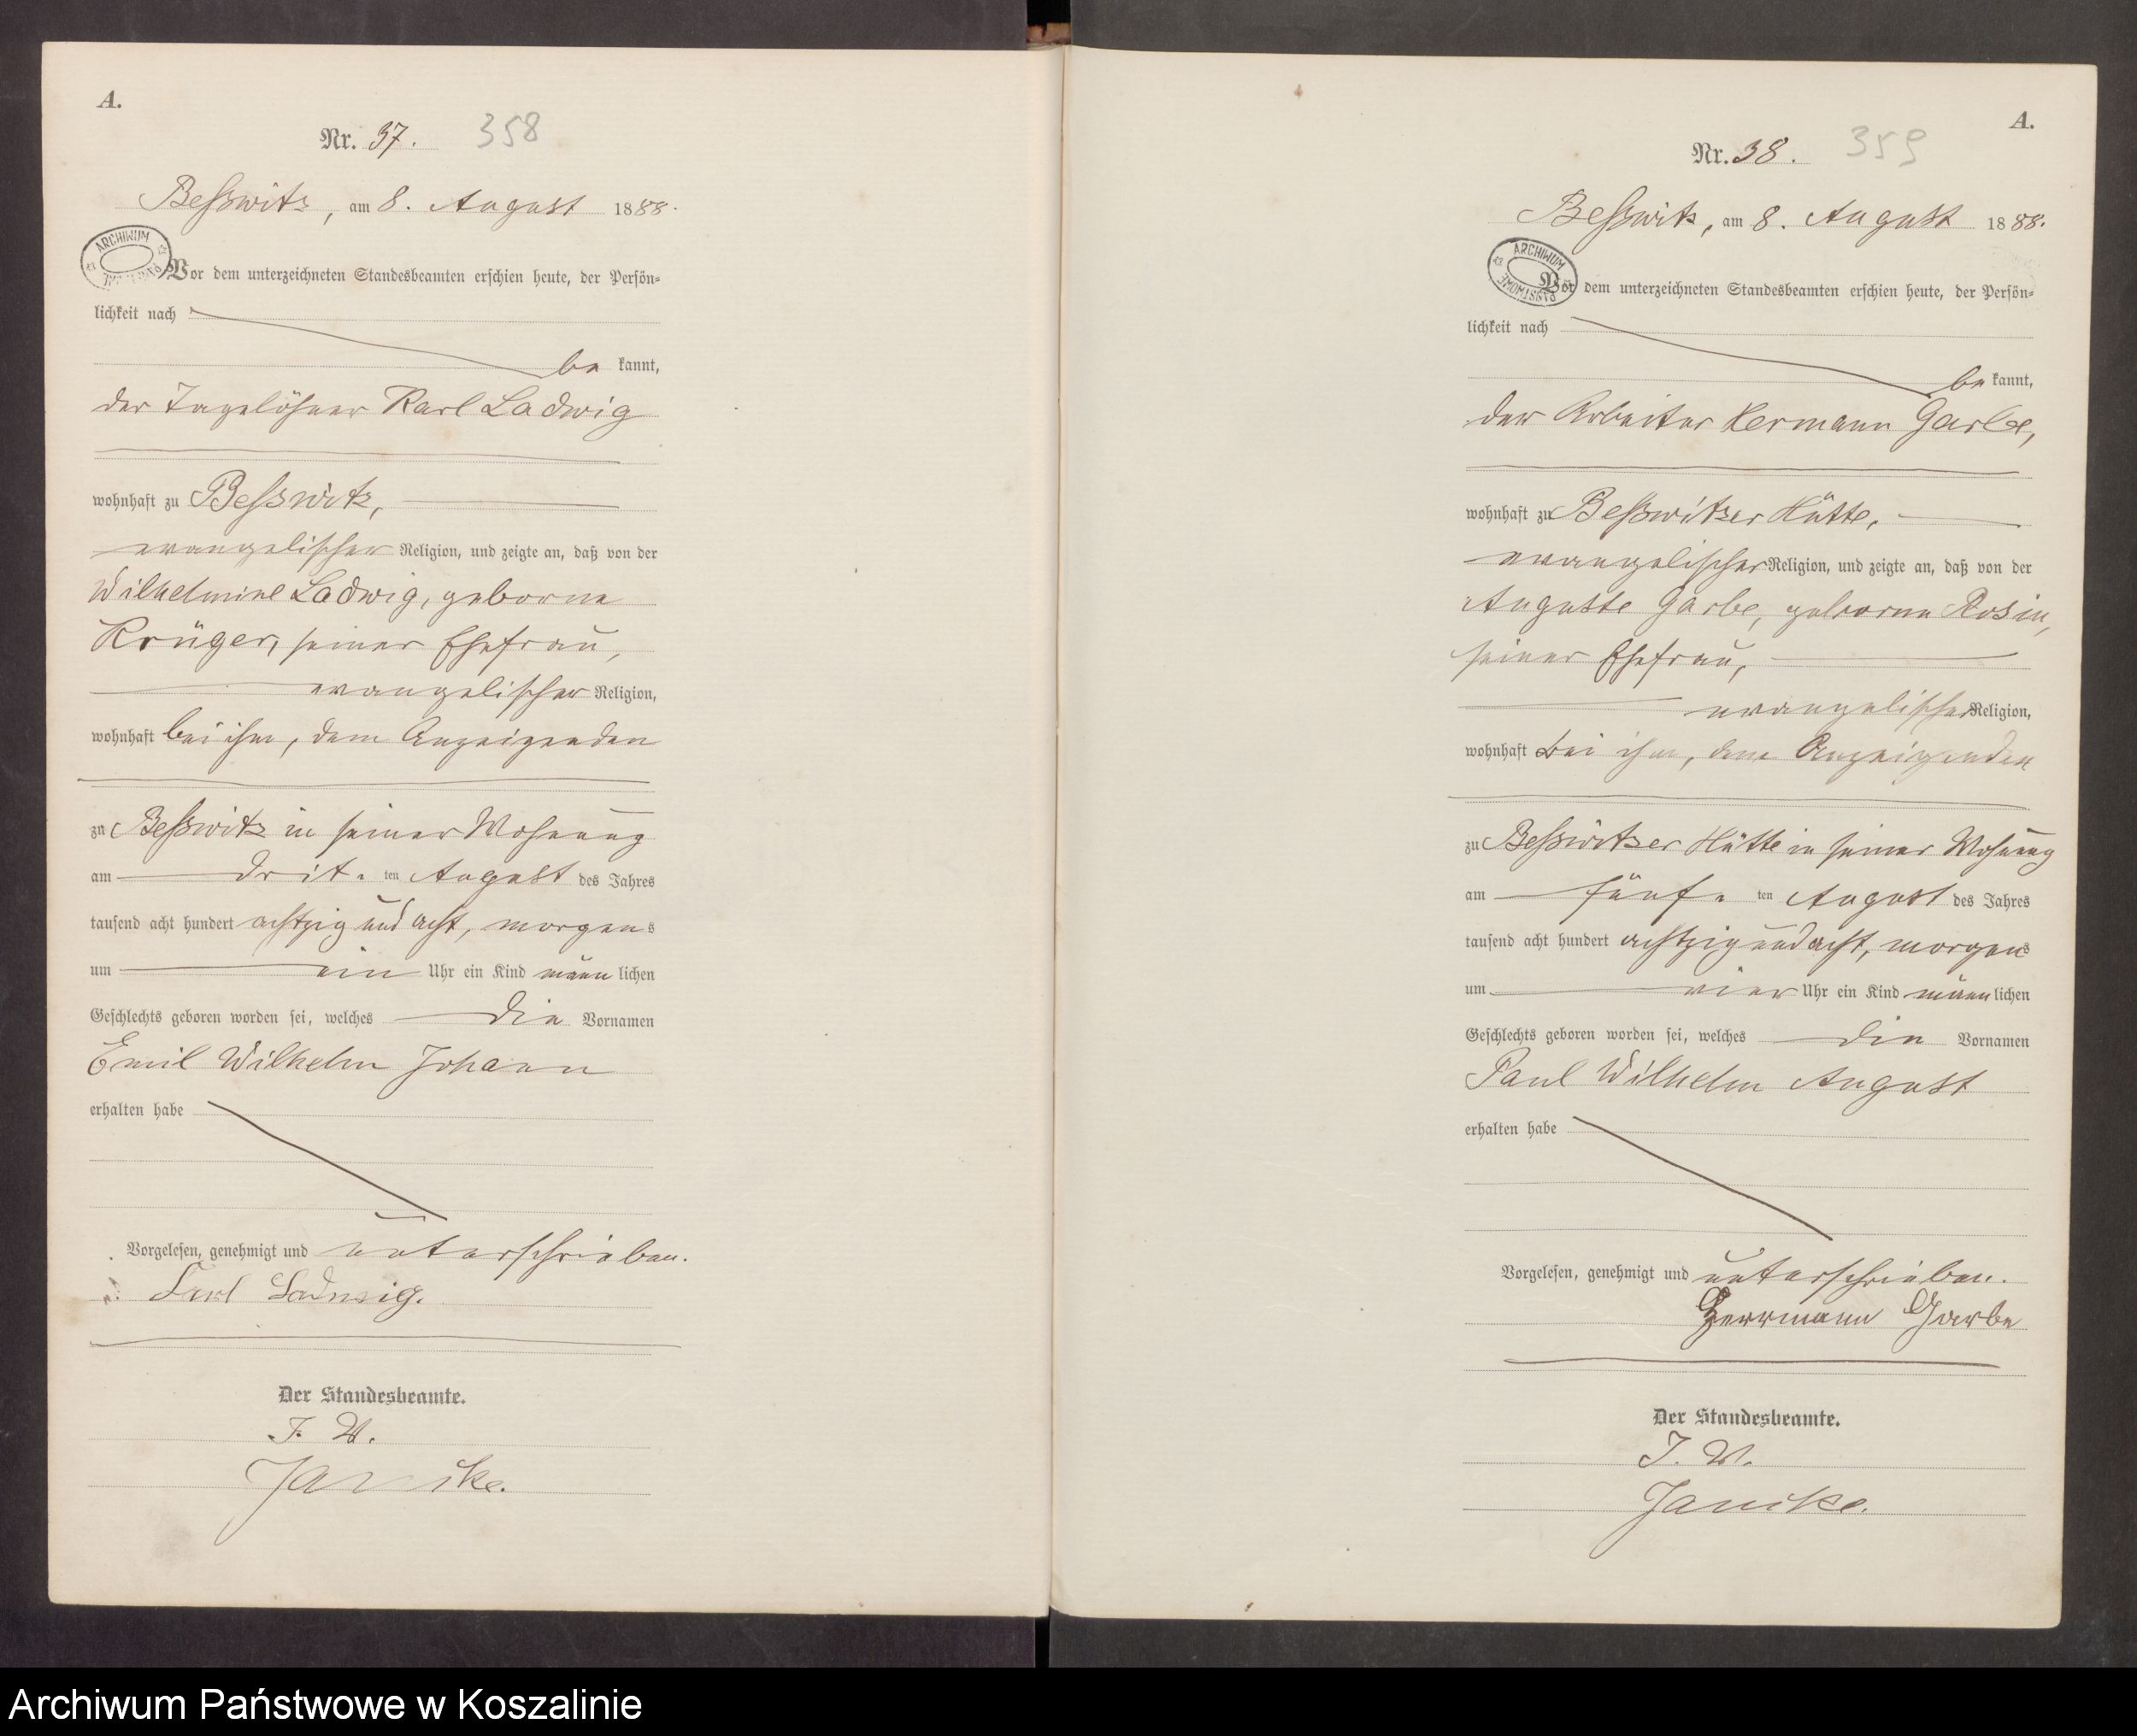 A.
Nr. 37. 358
Beßwitz, am 8. August 1888.
ARCHIWUM
Vor dem unterzeichneten Standesbeamten erschien heute, der Persön=
lichkeit nach
be kannt,
der Tagelöhner Karl Ladwig
wohnhaft zu Beßwitz,
evangelischer Religion, und zeigte an, daß von der
Wilhelmine Ladwig, geborne
Krüger, seiner Ehefrau,
evangelischer Religion,
wohnhaft bei ihm, dem Anzeigenden
zu Beßwitz in seiner Wohnung
am drit. ten August des Jahres
tausend acht hundert achtzig und acht, morgens
um ein Uhr ein Kind männ lichen
Geschlechts geboren worden sei, welches die Vornamen
Emil Wilhelm Johann
erhalten habe
Vorgelesen, genehmigt und unterschrieben.
Karl Ladwig.
Der Standesbeamte.
J. V.
Janike.
A.
Nr. 38. 359
Beßwitz, am 8. August 1888.
ARCHIWUM PAŃSTWOWE
Vor dem unterzeichneten Standesbeamten erschien heute, der Persön=
lichkeit nach
be kannt,
der Arbeiter Hermann Garbe,
wohnhaft zu Beßwitzer Hütte,
evangelischer Religion, und zeigte an, daß von der
Auguste Garbe, geborne Rosin,
seiner Ehefrau,
evangelischer Religion,
wohnhaft bei ihm, dem Anzeigenden
zu Beßwitzer Hütte in seiner Wohnung
am fünf. ten August des Jahres
tausend acht hundert achtzig und acht, morgens
um vier Uhr ein Kind männ lichen
Geschlechts geboren worden sei, welches die Vornamen
Paul Wilhelm August
erhalten habe
Vorgelesen, genehmigt und unterschrieben.
Herrmann Garbe
Der Standesbeamte.
J. V.
Janike.
Archiwum Państwowe w Koszalinie